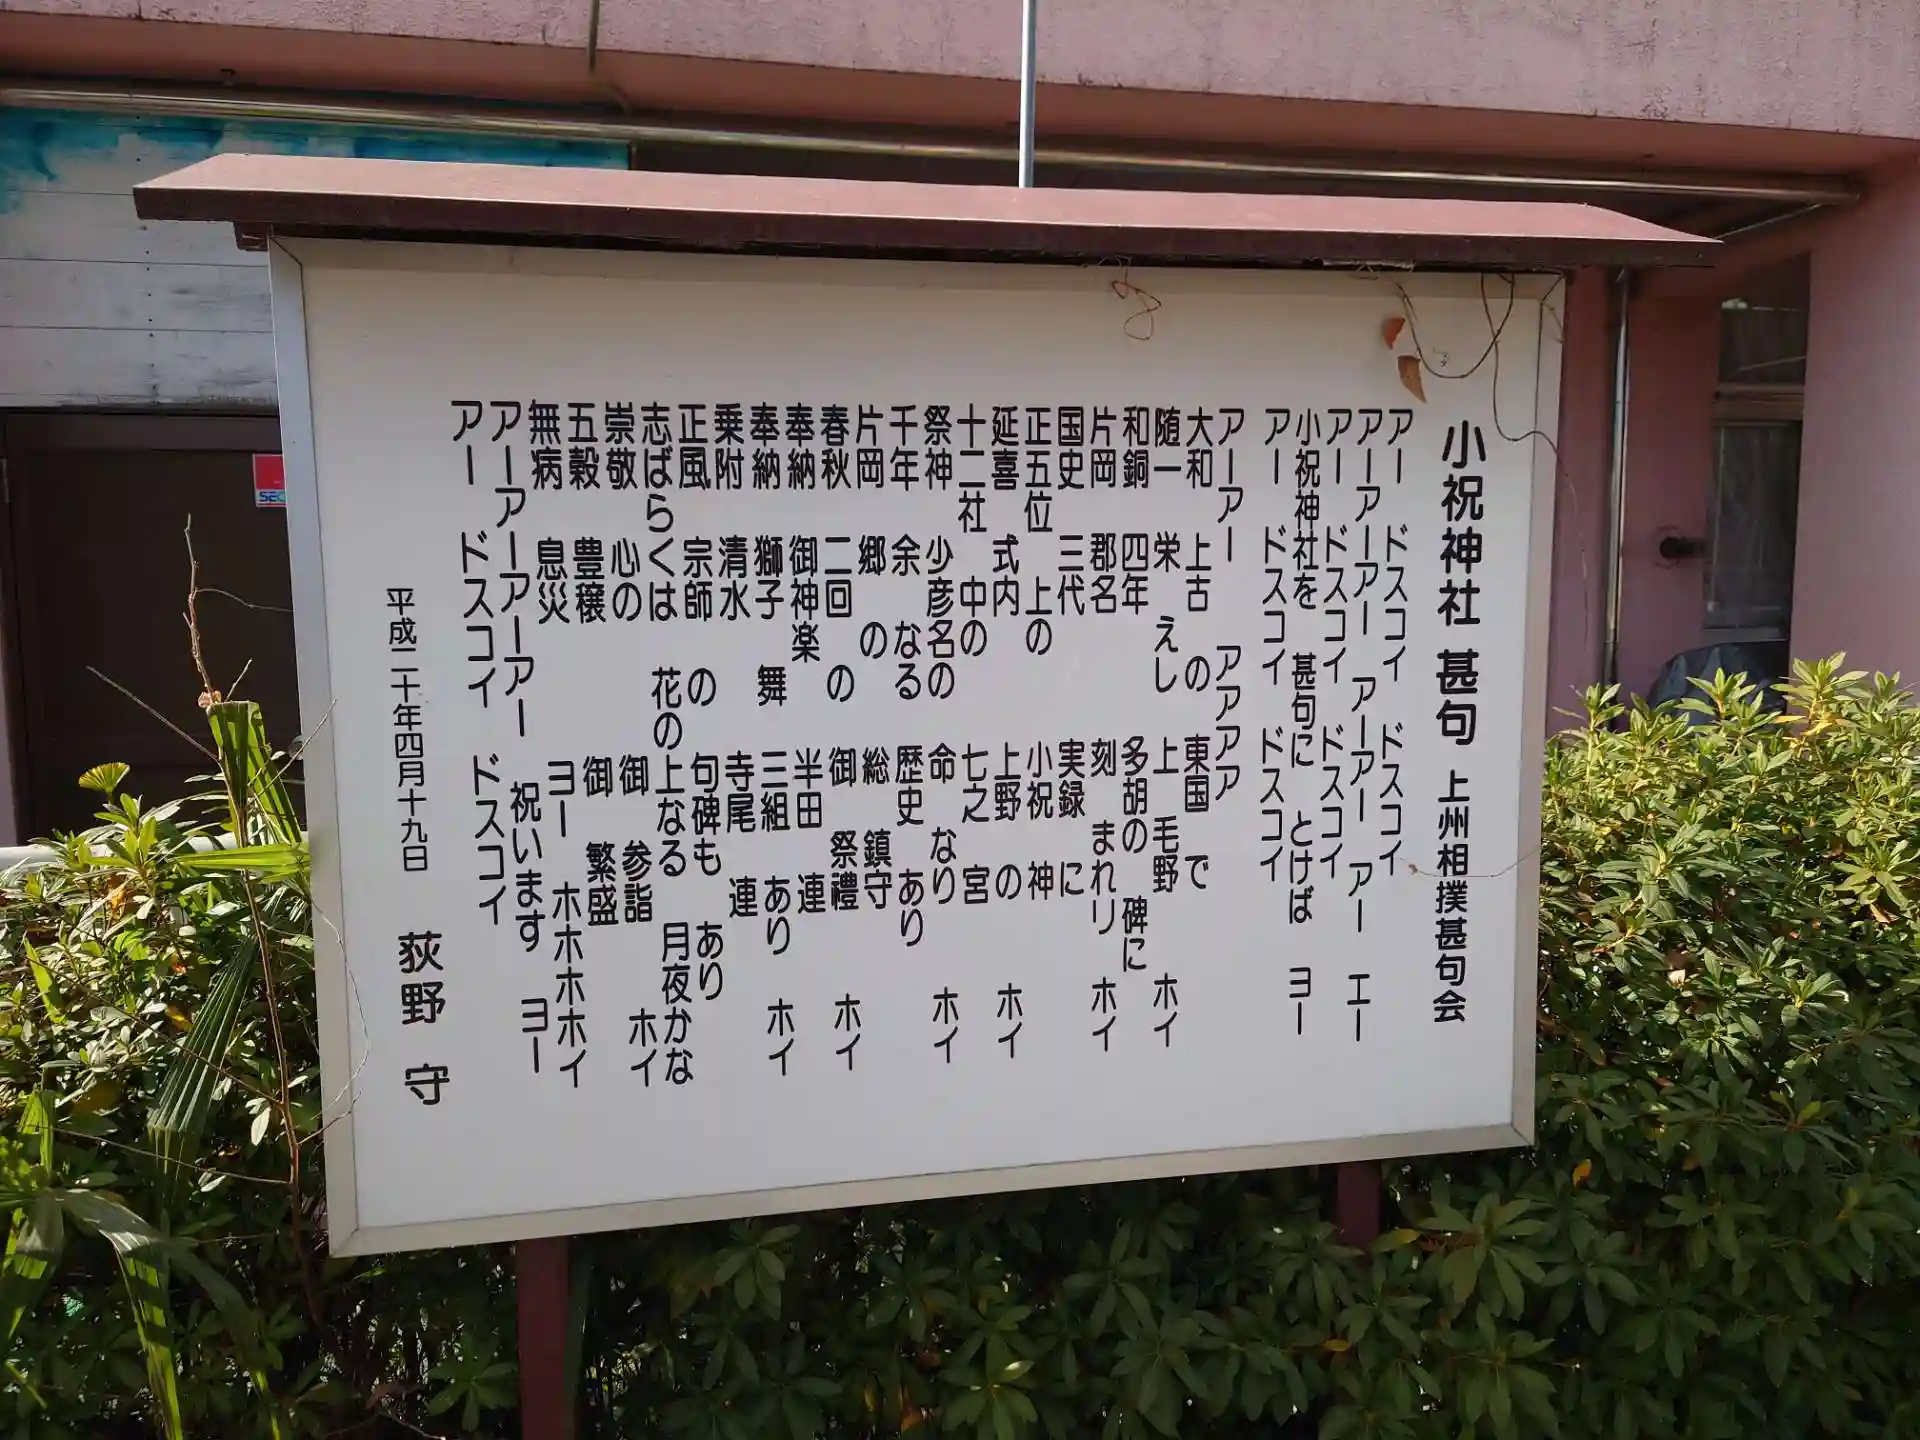 小祝神社 甚句 上州相撲甚句会
アー ドスコイ ドスコイ
アーアーアーアー アーアー アー エー
アー ドスコイ ドスコイ
小祝神社を 甚句に とけば ヨー
アー ドスコイ ドスコイ
アーアー アアアア
大和 上古 の 東国 で
随一 栄 えし 上 毛野 ホイ
和銅 四年 多胡の 碑に
片岡 郡名 刻 まれリ ホイ
国史 三代 実録 に
正五位 上の 小祝 神
延喜 式内 上野 の ホイ
十二社 中の 七之 宮
祭神 少彦名の 命 なり ホイ
千年 余 なる 歴史 あり
片岡 郷 の 総 鎮守
春秋 二回 の 御 祭禮 ホイ
奉納 御神楽 半田 連
奉納 獅子 舞 三組 あり ホイ
乗附 清水 寺尾 連
正風 宗師 の 句碑も あり
志ばらくは 花の上なる 月夜かな
崇敬 心の 御 参詣 ホイ
五穀 豊穣 御 繁盛
無病 息災 ヨー ホホホホイ
アーアーアーアーアー 祝います ヨー
アー ドスコイ ドスコイ
平成二十年四月十九日 荻野 守
SEC